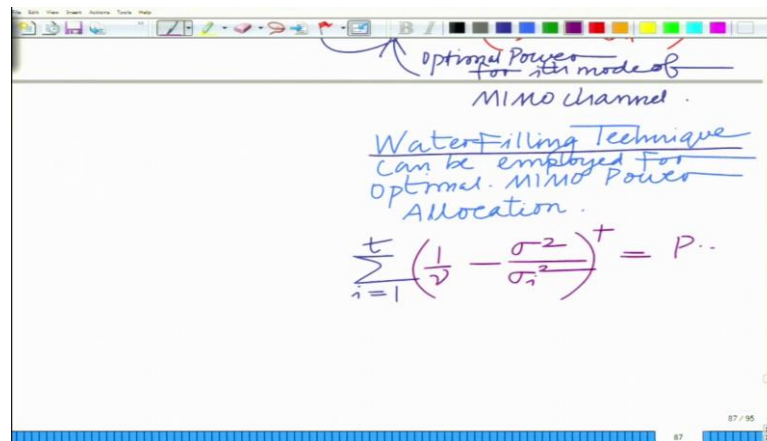 File Edit View Insert Actions Tools Help
optimal Power
for ith mode of
MIMO channel.
WaterFilling Technique
can be employed for
optimal. MIMO Power
Allocation.
\sum_{i=1}^{t} \left( \frac{1}{\nu} - \frac{\sigma^2}{\sigma_i^2} \right)^+ = P..
87 / 95
87